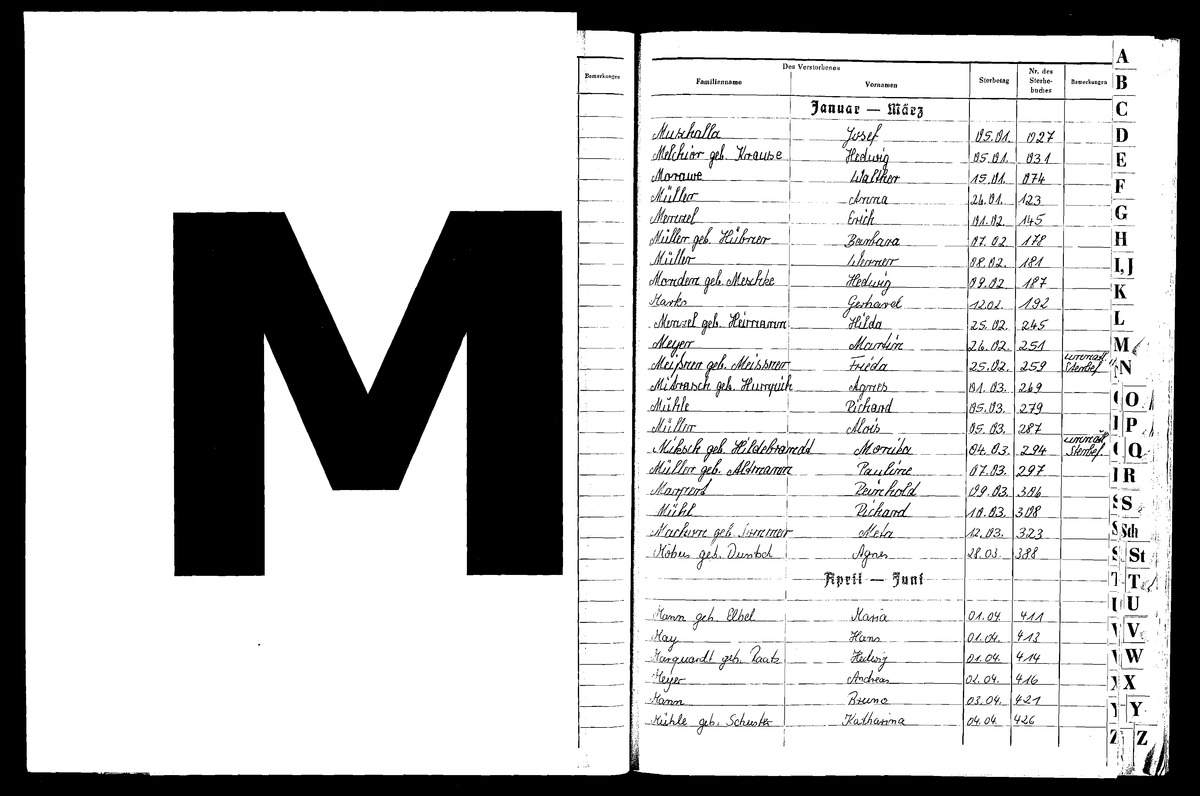 M
Bemerkungen
Des Verstorbenen
Familienname Vornamen Sterbetag Nr. des Sterbe-buches Bemerkungen
Januar — März
Muschalla Josef 05.01. 027
Melchior geb. Krause Hedwig 05.01. 031
Morawe Walther 15.01. 074
Müller Anna 26.01. 123
Menzel Erich 01.02. 145
Müller geb. Hübner Barbara 07.02 178
Müller Werner 08.02. 181
geb. Meschke Hedwig 09.02 187
Marks Gerhard 12.02. 192
Menzel geb. Heimann Hilda 25.02. 245
Meyer Martin 26.02. 251
Meißner geb. Meissner Frieda 25.02. 259
Mitrasch geb. Agnes 01.03. 269
Mühle Richard 05.03. 279
Müller Alois 05.03. 287
Miksch geb. Hildebrandt Monika 04.03. 294
Müller geb. Pauline 07.03. 297
Reinhold 09.03. 306
Mühl Richard 10.03. 308
geb. Sommer Meta 12.03. 323
Möbus geb. Agnes 28.03. 388
April — Juni
Mann geb. Elbel Maria 01.04. 411
May Hans 01.04. 413
Marquardt geb. Raatz Hedwig 01.04. 414
Meyer Andreas 02.04. 416
Mann Bruno 03.04. 421
Mühle geb. Schuster Katharina 04.04. 426
A
B
C
D
E
F
G
H
I, J
K
L
M
N
O
P
Q
R
S
Sch
St
T
U
V
W
X
Y
Z